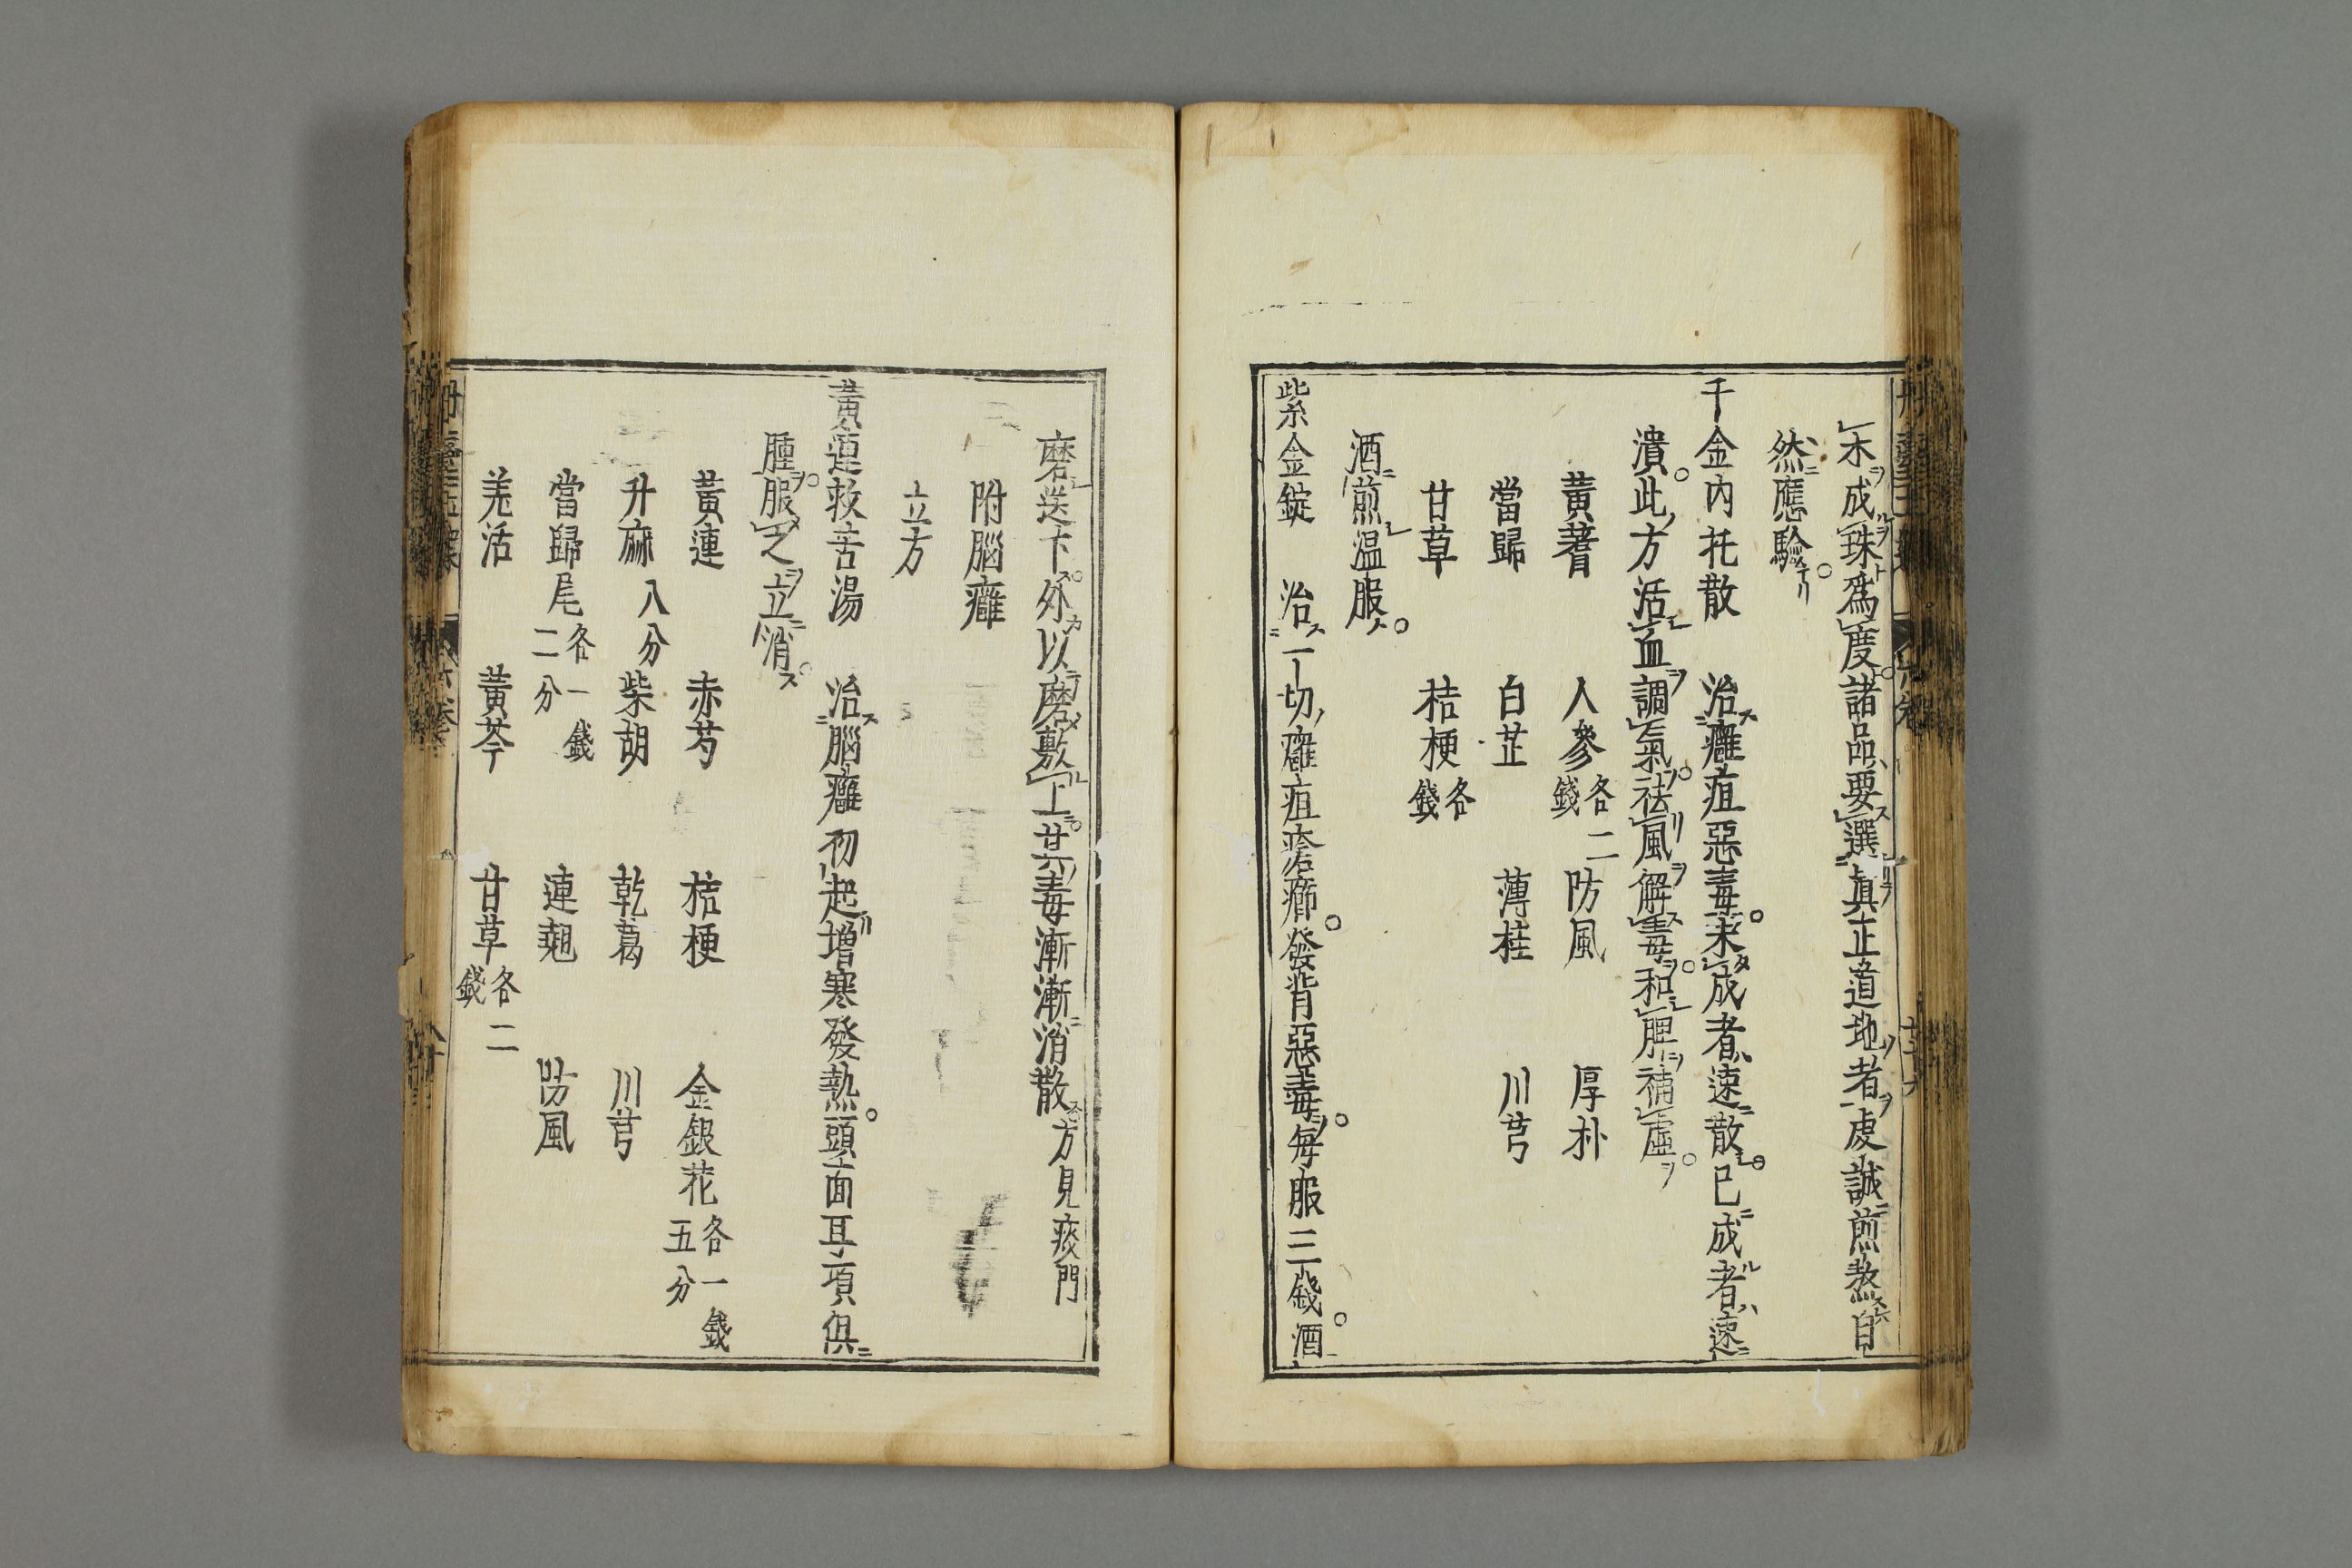 水成珠爲度諸品要選真正道地者虔誠煎熬自
然應驗
千金内托散　治癰疽惡毒未成者速散已成者速
潰此方活血調氣祛風解毒和脾補虛
黄蓍　人參各二錢　防風　厚朴
當歸　白芷　薄桂　川芎
甘草　桔梗各錢
酒煎温服
紫金錠　治一切癰疽瘡癤發背惡毒每服三錢酒
磨送下外以磨敷上其毒漸漸消散方見痰門
附腦癰
立方
黄連救苦湯　治腦癰初起增寒發熱頭面耳項俱
腫服之立消
黄連　赤芍　桔梗　金銀花各一錢五分
升麻八分　柴胡　乾葛　川芎
當歸尾各一錢二分　連翹　防風
羌活　黄芩　甘草各二錢